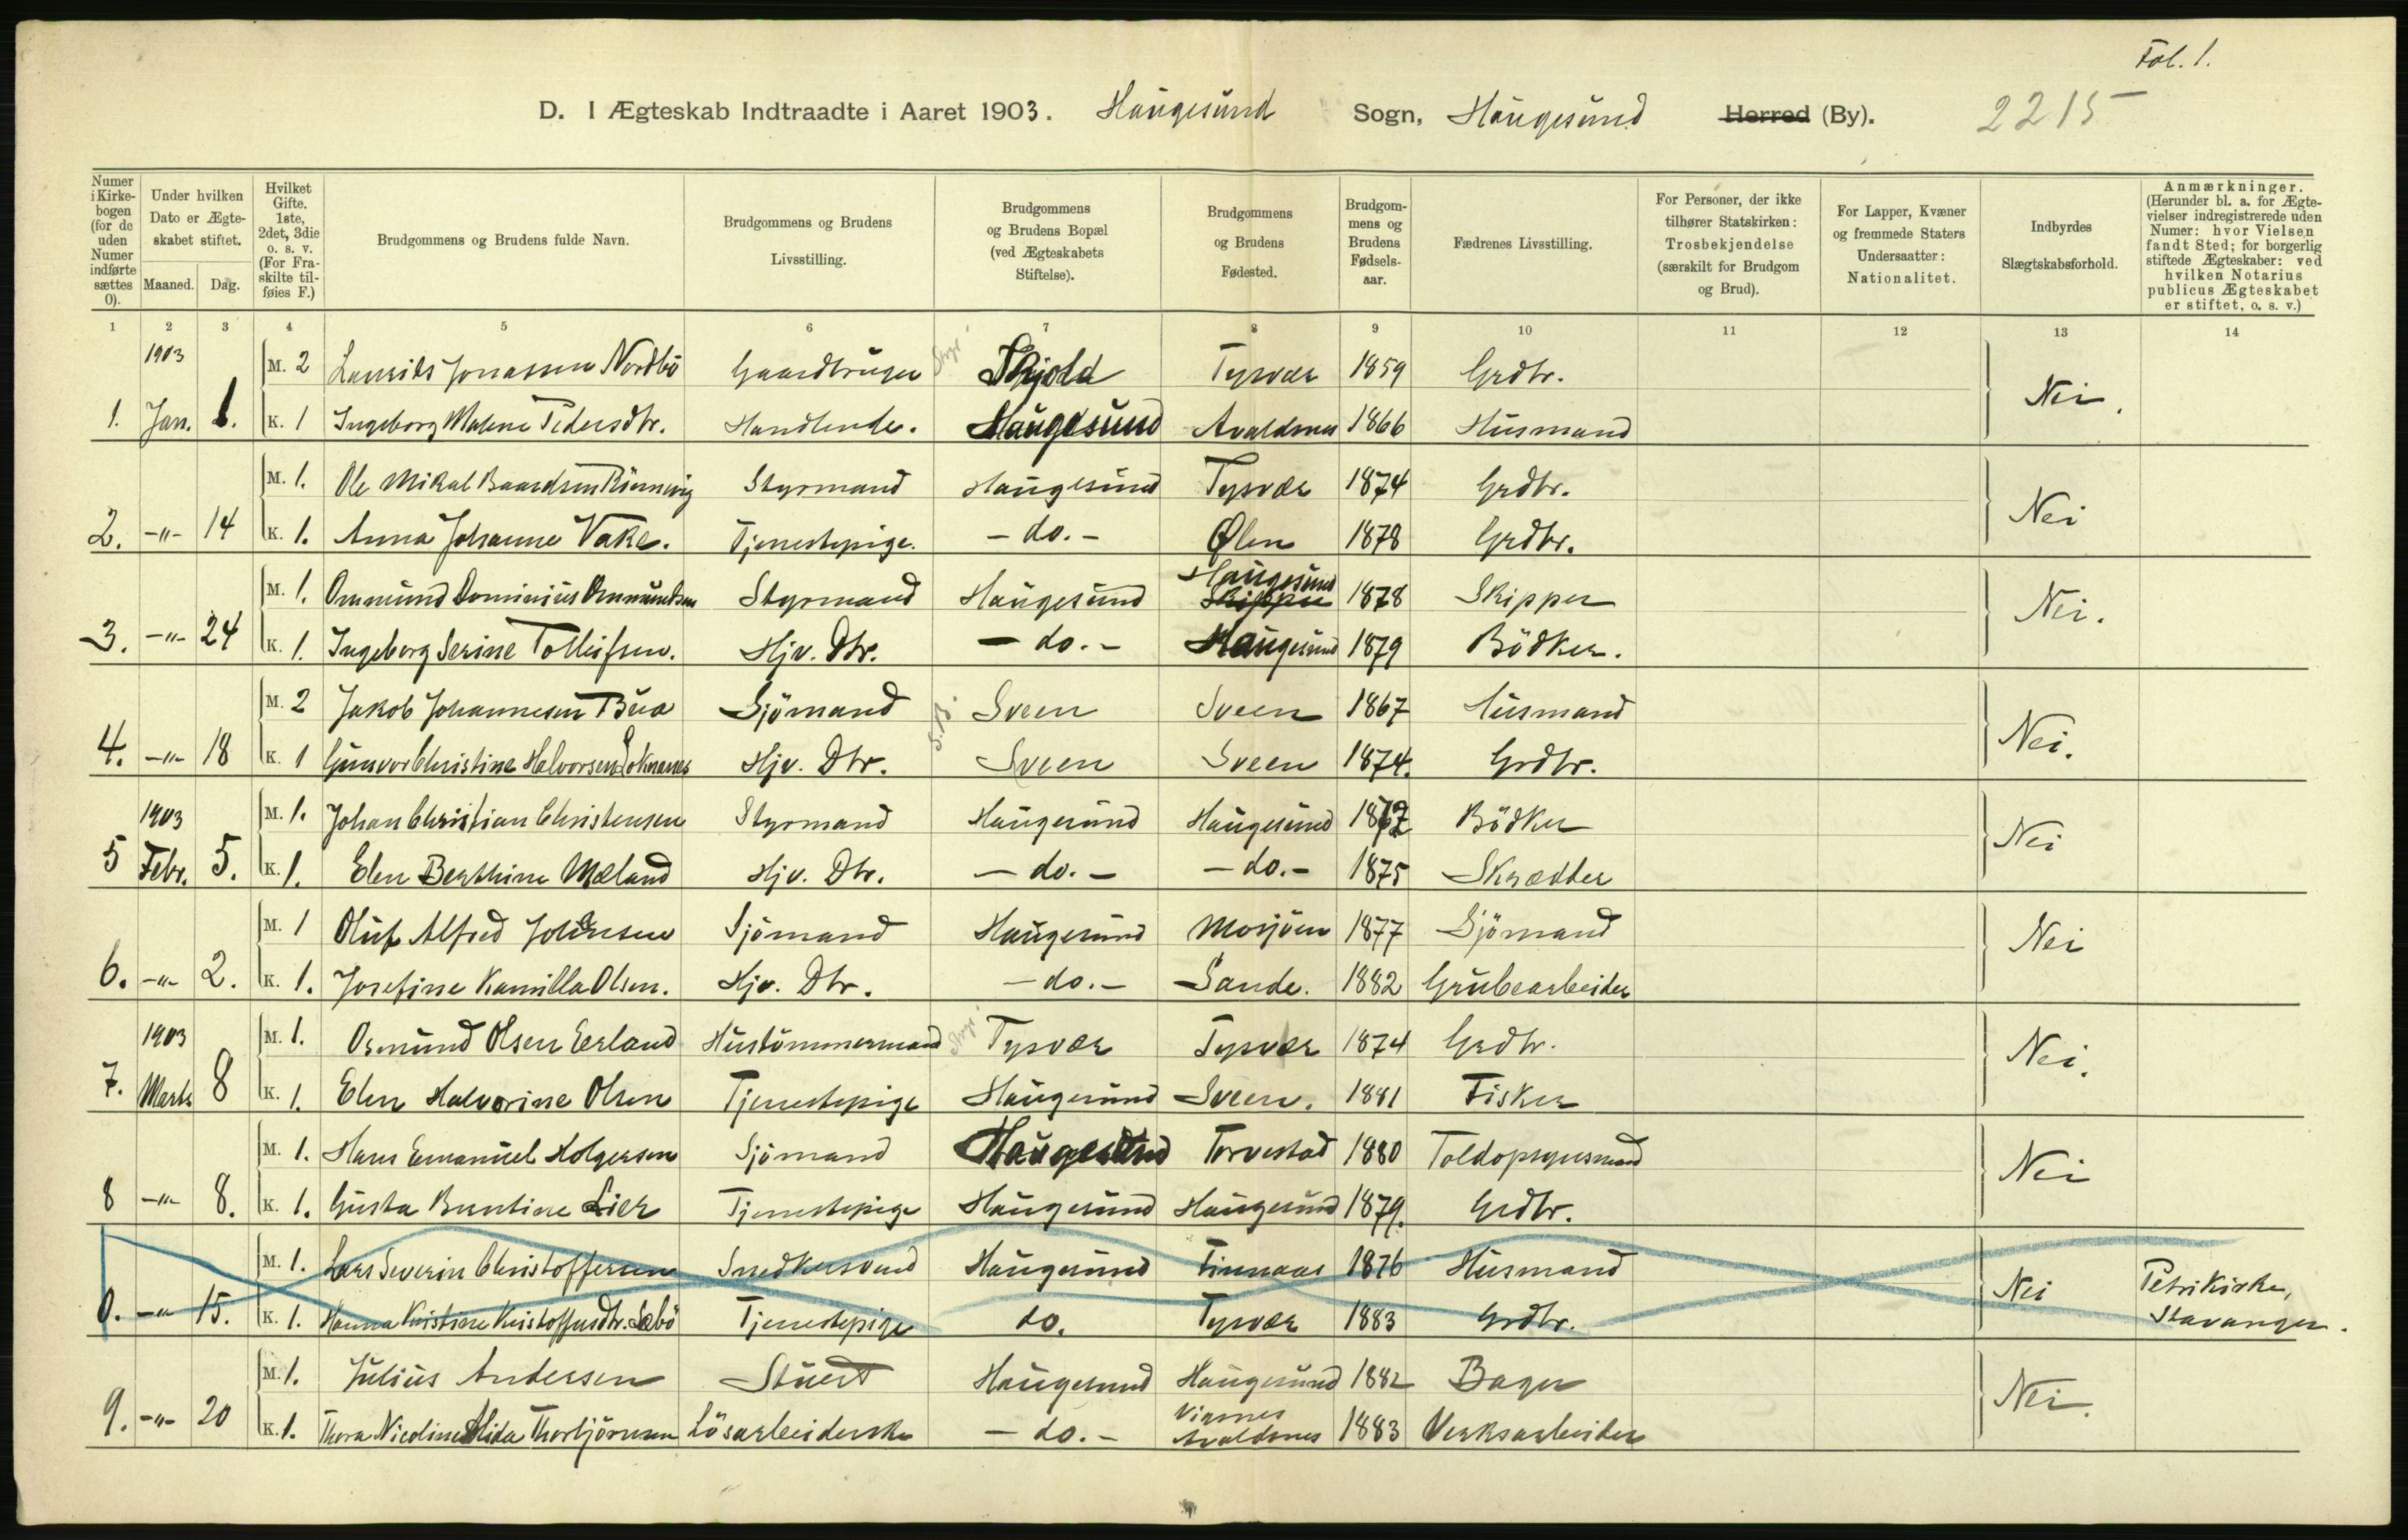 Fol. 1.
D. I Ægteskab Indtraadte i Aaret 1903. Haugesund Sogn, Haugesund Herred (By). 2215
Numer i Kirke-bogen (for de uden Numer indførte sættes 0).
Under hvilken Dato er Ægte-skabet stiftet.
Maaned. Dag.
Hvilket Gifte. 1ste, 2det, 3die o. s. v. (For Fra-skilte til-føies F.)
Brudgommens og Brudens fulde Navn.
Brudgommens og Brudens Livsstilling.
Brudgommens og Brudens Bopæl (ved Ægteskabets Stiftelse).
Brudgommens og Brudens Fødested.
Brudgom-mens og Brudens Fødsels-aar.
Fædrenes Livsstilling.
For Personer, der ikke tilhører Statskirken: Trosbekjendelse (særskilt for Brudgom og Brud).
For Lapper, Kvæner og fremmede Staters Undersaatter: Nationalitet.
Indbyrdes Slægtskabsforhold.
Anmærkninger. (Herunder bl. a. for Ægte-vielser indregistrerede uden Numer: hvor Vielsen fandt Sted; for borgerlig stiftede Ægteskaber: ved hvilken Notarius publicus Ægteskabet er stiftet, o. s. v.)
1 2 3 4 5 6 7 8 9 10 11 12 13 14
1903 M. 2 Laurits Jonassen Nordbö Gaardbruger Skjold Tysvær 1859 Grdbr.
1. Jan. 1. K. 1 Ingeborg Malene Pedersdtr. Handlende. Haugesund Avaldsnes 1866 Husmand Nei.
M. 1. Ole Mikal Baardsen Styrmand Haugesund Tysvær 1874 Grdbr.
2. -"- 14 K. 1. Anna Johanne Vake. Tjenestepige. - do. - Ølen 1878 Grdbr. Nei
M. 1. Ommund Dominius Ommundsen Styrmand Haugesund Haugesund Skipper 1878 Skipper
3. -"- 24 K. 1. Ingeborg Serine Tolleifsen. Hjv. Dtr. - do. - Haugesund 1879 Bödker. Nei.
M. 2 Jakob Johannesen Bua Sjömand Sveen Sveen 1867 Husmand
4. -"- 18 K. 1 Gunvor Christine Halvorsen Hjv. Dtr. Sveen Sveen 1874. Grdbr. Nei.
1903 M. 1. Johan Christian Christensen Styrmand Haugesund Haugesund 1872 Bödker
5 Febr. 5. K. 1. Elen Berthine Mæland Hjv. Dtr. - do. - - do. - 1875 Skrædder Nei
M. 1 Oluf Alfred Johansen Sjömand Haugesund Mosjöen 1877 Sjömand
6. -"- 2. K. 1. Josefine Kamilla Olsen. Hjv. Dtr. - do. - Sande. 1882 Grubearbeider Nei
1903 M. 1. Osmund Olsen Eerland Hustömmermand Tysvær Tysvær 1874 Grdbr.
7. Marts 8 K. 1. Elen Halvorine Olsen Tjenestepige Haugesund Sveen. 1881 Fisker Nei.
M. 1. Hans Emanuel Holgersen Sjömand Haugesund Torvestad 1880 Toldopsynsmand
8 -"- 8. K. 1. Gusta Bertine Lier Tjenestepige Haugesund Haugesund 1879. Grdbr. Nei
M. 1. Lars Severin Christoffersen Snedkersvend Haugesund Finnaas 1876 Husmand
0. -"- 15. K. 1. Hanna Kristine Kristoffersdtr. Sæbö Tjenestepige do. Tysvær 1883 Grdbr. Nei Petrikirke, Stavanger.
M. 1. Julius Andersen Stuert Haugesund Haugesund 1882 Bager
9. -"- 20 K. 1. Thora Nicoline Alida Thorbjörnsen Lösarbeiderske - do. - Visnes Avaldsnes 1883 Verksarbeider Nei.